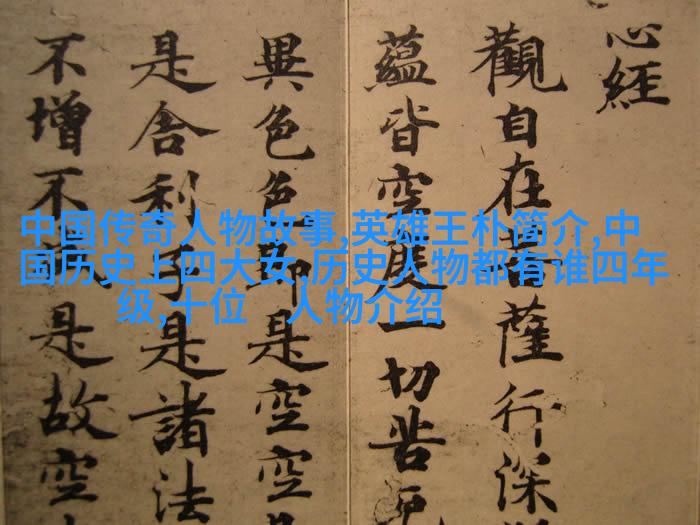 心經
觀自在菩薩行深
蘊皆空度一切苦厄
異色色即是空空
是舍利子是諸法
不增不是故空
中国传奇人物故事,英雄王朴简介,中
国历史上四大女,历史人物都有谁四年
级,十位 人物介绍